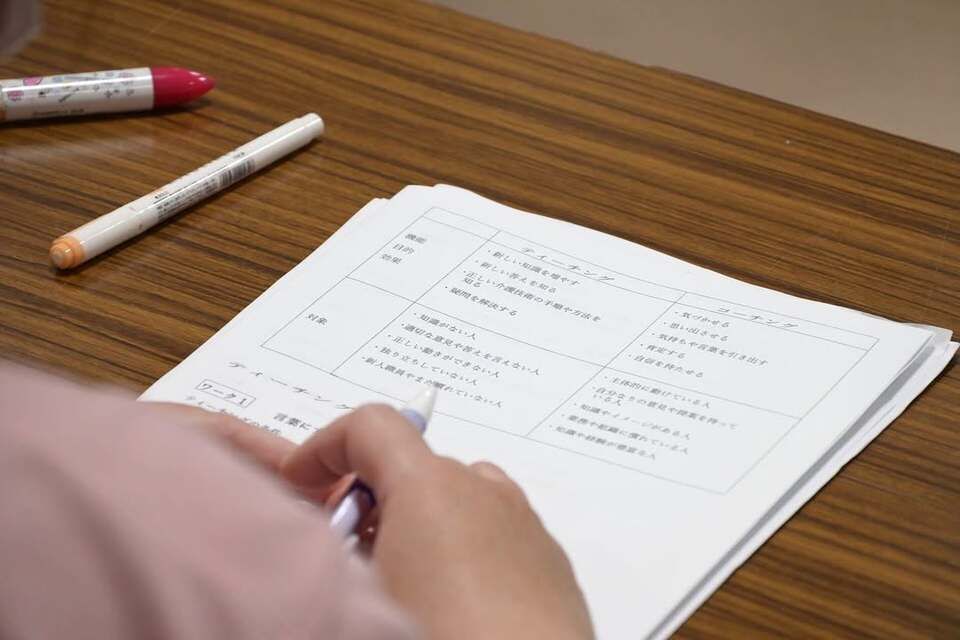 ティーチング
コーチング
機能
目的
効果
・新しい知識を増やす
・新しい答えを知る
・正しい介護技術の手順や方法を
知る
・疑問を解決する
・気づかせる
・思い出させる
・気持ちや言葉を引き出す
・肯定する
・自信を持たせる
対象
・知識がない人
・適切な意見や答えを言えない人
・正しい動きができない人
・独り立ちしていない人
・新人職員やまだ慣れていない人
・主体的に動けている人
・自分なりの意見や提案を持って
いる人
・知識やイメージがある人
・業務や組織に慣れている人
・知識や経験が豊富な人
ティーチング
ワーク1
言葉に